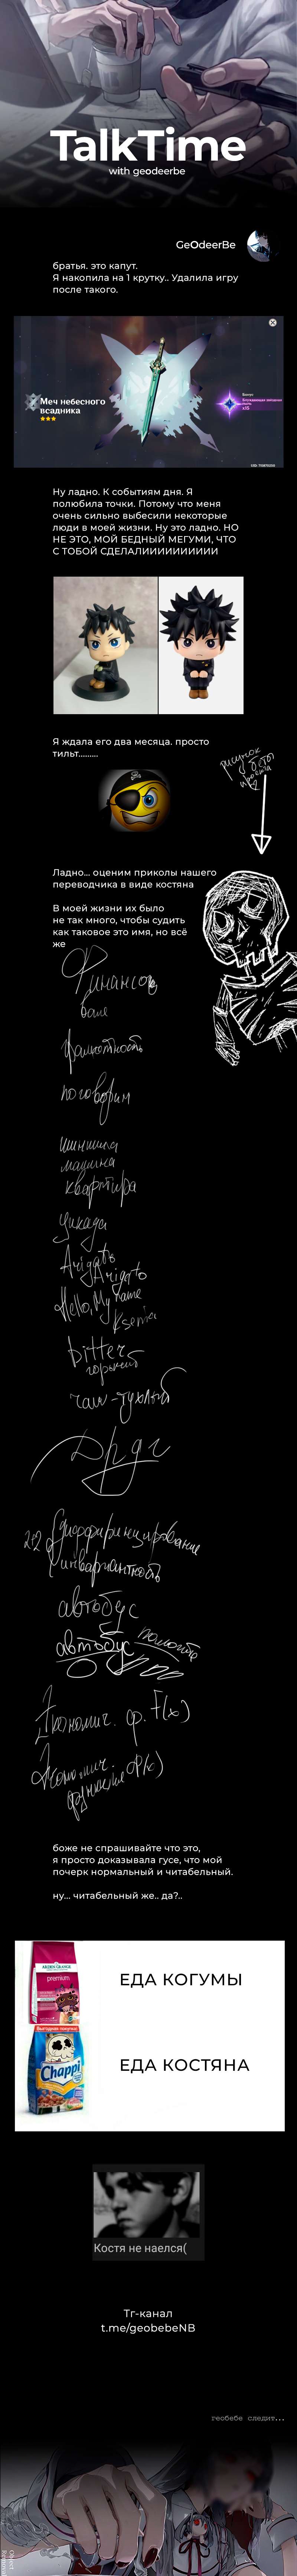 TalkTime
with geodeerbe
GeOdeerBe
братья. это капут.
Я накопила на 1 крутку.. Удалила игру
после такого.
Меч небесного
всадника
x15
Ну ладно. К событиям дня. Я
полюбила точки. Потому что меня
очень сильно выбесили некоторые
люди в моей жизни. Ну это ладно. НО
НЕ ЭТО, МОЙ БЕДНЫЙ МЕГУМИ, ЧТО
С ТОБОЙ СДЕЛАЛИИИИИИИИИИ
Я ждала его два месяца. просто
тильт.........
рисунок
Ладно... оценим приколы нашего
переводчика в виде костяна
В моей жизни их было
не так много, чтобы судить
как таковое это имя, но всё
же
Финансов
Грамотность
поговорим
машина
квартира
цикада
Arigato
Arigato
Hello, My name
Ksenia
bitter
горький
чан-тухлый
Друг
инвариантность
автобус
автобус
Экономич. ф. F(x)
боже не спрашивайте что это,
я просто доказывала гусе, что мой
почерк нормальный и читабельный.
ну... читабельный же.. да?..
ARDEN GRANGE
premium
ЕДА КОГУМЫ
Chappi
ЕДА КОСТЯНА
Костя не наелся(
Тг-канал
t.me/geobebeNB
геобебе следит...